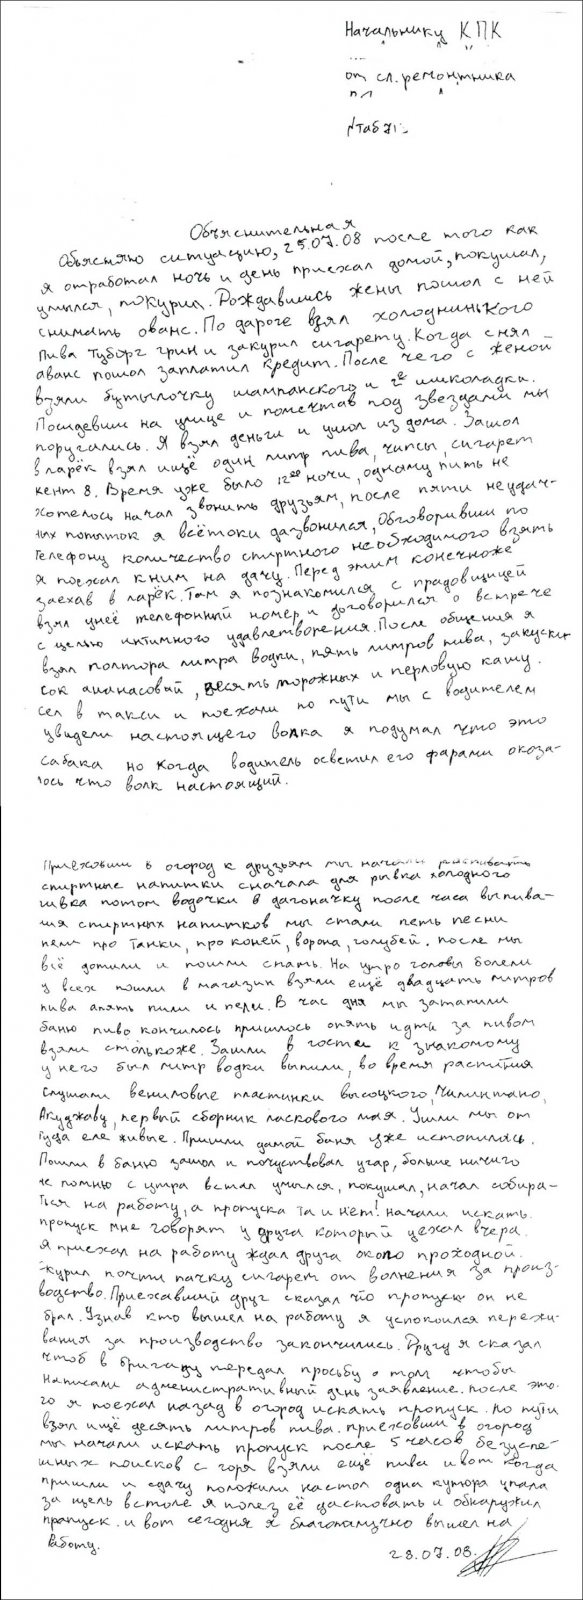 Начальнику КПК
...
от сл. ремонтника
Nтаб 71
Объяснительная
Объясняю ситуацию, 25.07.08 после того как
я отработал ночь и день приехал домой, покушал,
умылся, покурил. Рождавшись жены пошол с ней
снимать ованс. По дароге взял холоднинького
пива Туборг грин и закурил сигарету. Когда снял
аванс пошол заплатил кредит. После чего с женой
взяли бутылочку шампанского и 2е шиколадки.
Посидевши на улице и помечтав под звездами мы
поругались. Я взял деньги и ушол из дома. Зашол
в ларёк взял ищё один литр пива, чипсы, сигарет
кент 8. Время уже было 12оо ночи, одному пить не
хотелось начал звонить друзьям, после пяти неудач-
них попыток я всётоки дазвонился, Обговоривши по
телефону количество спиртного необходимого взять
я поехал кним на дачу. Перед этим конечноже
заехав в ларёк. Там я познакомился с прадовщицей
взял унеё телефонный номер и договорился о встрече
с целью интимного удавлетворения. После общения я
взял полтора литра водки, пять литров пива, закуски
сок ананасовый, десять пирожных и перловую кашу.
сел в такси и поехали по пути мы с водителем
увидели настоящего волка я подумал что это
сабака но когда водитель осветил его фарами окоза-
лось что волк настоящий.
Приеховши в огород к друзьям мы начали распивать
спиртные напитки сначала для рывка холодного
пивка потом водочки в дагоначку после часа выпива-
ния спиртных напитков мы стали петь песни
пели про танки, про коней, ворона, голубей. после мы
всё допили и пошли спать. На утро головы болели
у всех пошли в магазин взяли ещё двадцать литров
пива апять пили и пели. В час дня мы затапили
баню пиво кончилось пришлось опять идти за пивом
взяли столькоже. Зашли в гости к знакомому
у него был литр водки выпили, во время распития
слушали вениловые пластинки высоцкого, Чилинтано,
Акуджаву, первый сборник ласкового мая. Ушли мы от
туда еле живые. Пришли дамой баня уже истопилась.
Пошли в баню зашол и почуствовал угар, больше ничего
не помню с утра встал умылся, покушал, начал собира-
ться на работу, а пропуска та и нет! начали искать.
пропуск мне говорят у друга который уехал вчера.
я приехал на работу ждал друга около проходной.
скурил почти пачку сигарет от волнения за произ-
водство. Приехавший друг сказал что пропуск он не
брал. Узнав кто вышел на работу я успокоился пережи-
вания за производство закончились. Другу я сказал
чтоб в бригаду передал просьбу о том чтобы
написали административный день заявление. после это-
го я поехал назад в огород искать пропуск. по пути
взял ищё десять литров пива. приеховши в огород
мы начали искать пропуск после 5 часов безуспе-
шных поисков с горя взяли ещё пива и вот когда
пришли и сдачу положили настол одна купюра упала
за щель встоле я полез её доставать и обнаружил
прапуск. и вот сегодня я благополучно вышел на
работу.
28.07.08.